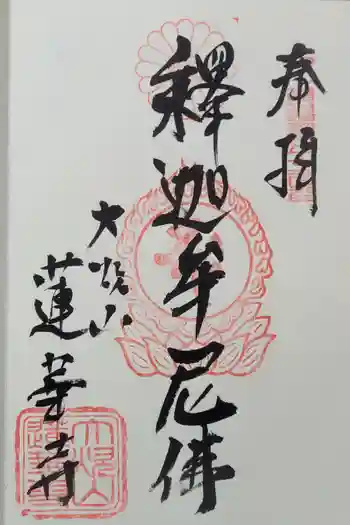 奉拝
釋迦牟尼佛
大悲山
蓮華寺